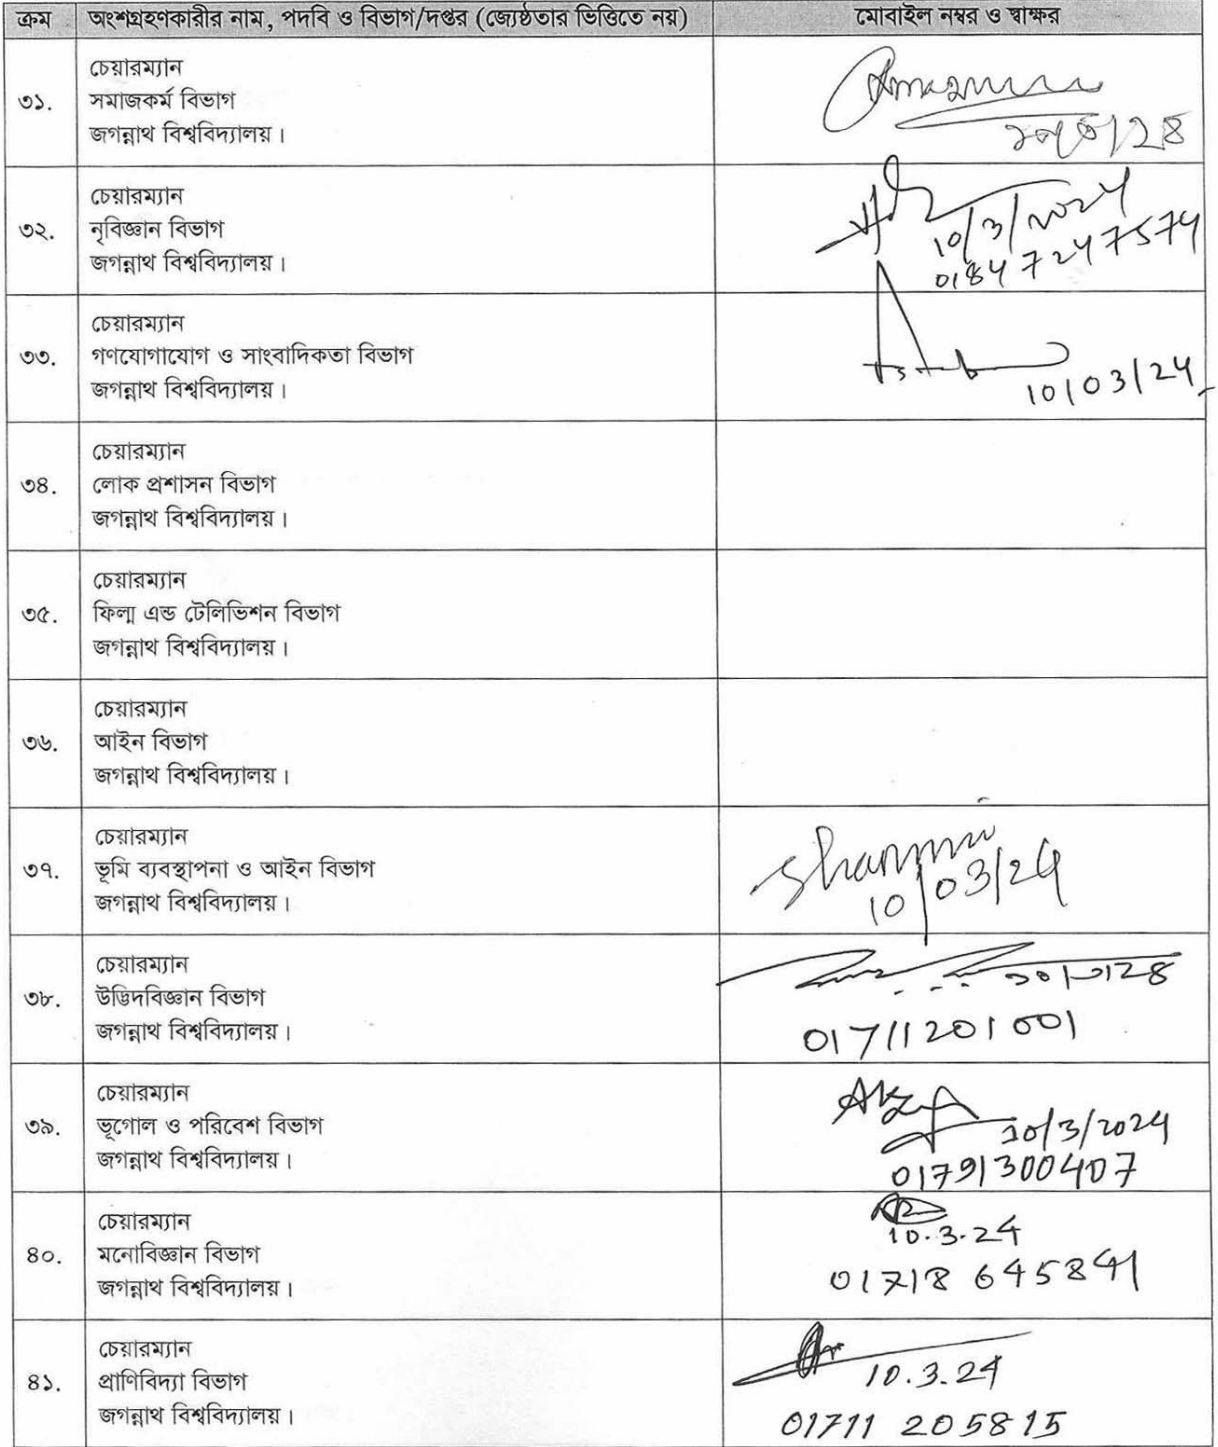 ক্রম অংশগ্রহণকারীর নাম, পদবি ও বিভাগ/দপ্তর (জ্যেষ্ঠতার ভিত্তিতে নয়) মোবাইল নম্বর ও স্বাক্ষর
৩১.
চেয়ারম্যান
সমাজকর্ম বিভাগ
জগন্নাথ বিশ্ববিদ্যালয়।
৩২.
চেয়ারম্যান
নৃবিজ্ঞান বিভাগ
জগন্নাথ বিশ্ববিদ্যালয়।
10/3/2024
01847247574
৩৩.
চেয়ারম্যান
গণযোগাযোগ ও সাংবাদিকতা বিভাগ
জগন্নাথ বিশ্ববিদ্যালয়।
10/03/24
৩৪.
চেয়ারম্যান
লোক প্রশাসন বিভাগ
জগন্নাথ বিশ্ববিদ্যালয়।
৩৫.
চেয়ারম্যান
ফিল্ম এন্ড টেলিভিশন বিভাগ
জগন্নাথ বিশ্ববিদ্যালয়।
৩৬.
চেয়ারম্যান
আইন বিভাগ
জগন্নাথ বিশ্ববিদ্যালয়।
৩৭.
চেয়ারম্যান
ভূমি ব্যবস্থাপনা ও আইন বিভাগ
জগন্নাথ বিশ্ববিদ্যালয়।
10/03/24
৩৮.
চেয়ারম্যান
উদ্ভিদবিজ্ঞান বিভাগ
জগন্নাথ বিশ্ববিদ্যালয়।
১০/৩/২৪
01711201001
৩৯.
চেয়ারম্যান
ভূগোল ও পরিবেশ বিভাগ
জগন্নাথ বিশ্ববিদ্যালয়।
10/3/2024
01791300407
৪০.
চেয়ারম্যান
মনোবিজ্ঞান বিভাগ
জগন্নাথ বিশ্ববিদ্যালয়।
10.3.24
01718 645841
৪১.
চেয়ারম্যান
প্রাণিবিদ্যা বিভাগ
জগন্নাথ বিশ্ববিদ্যালয়।
10.3.24
01711 205815